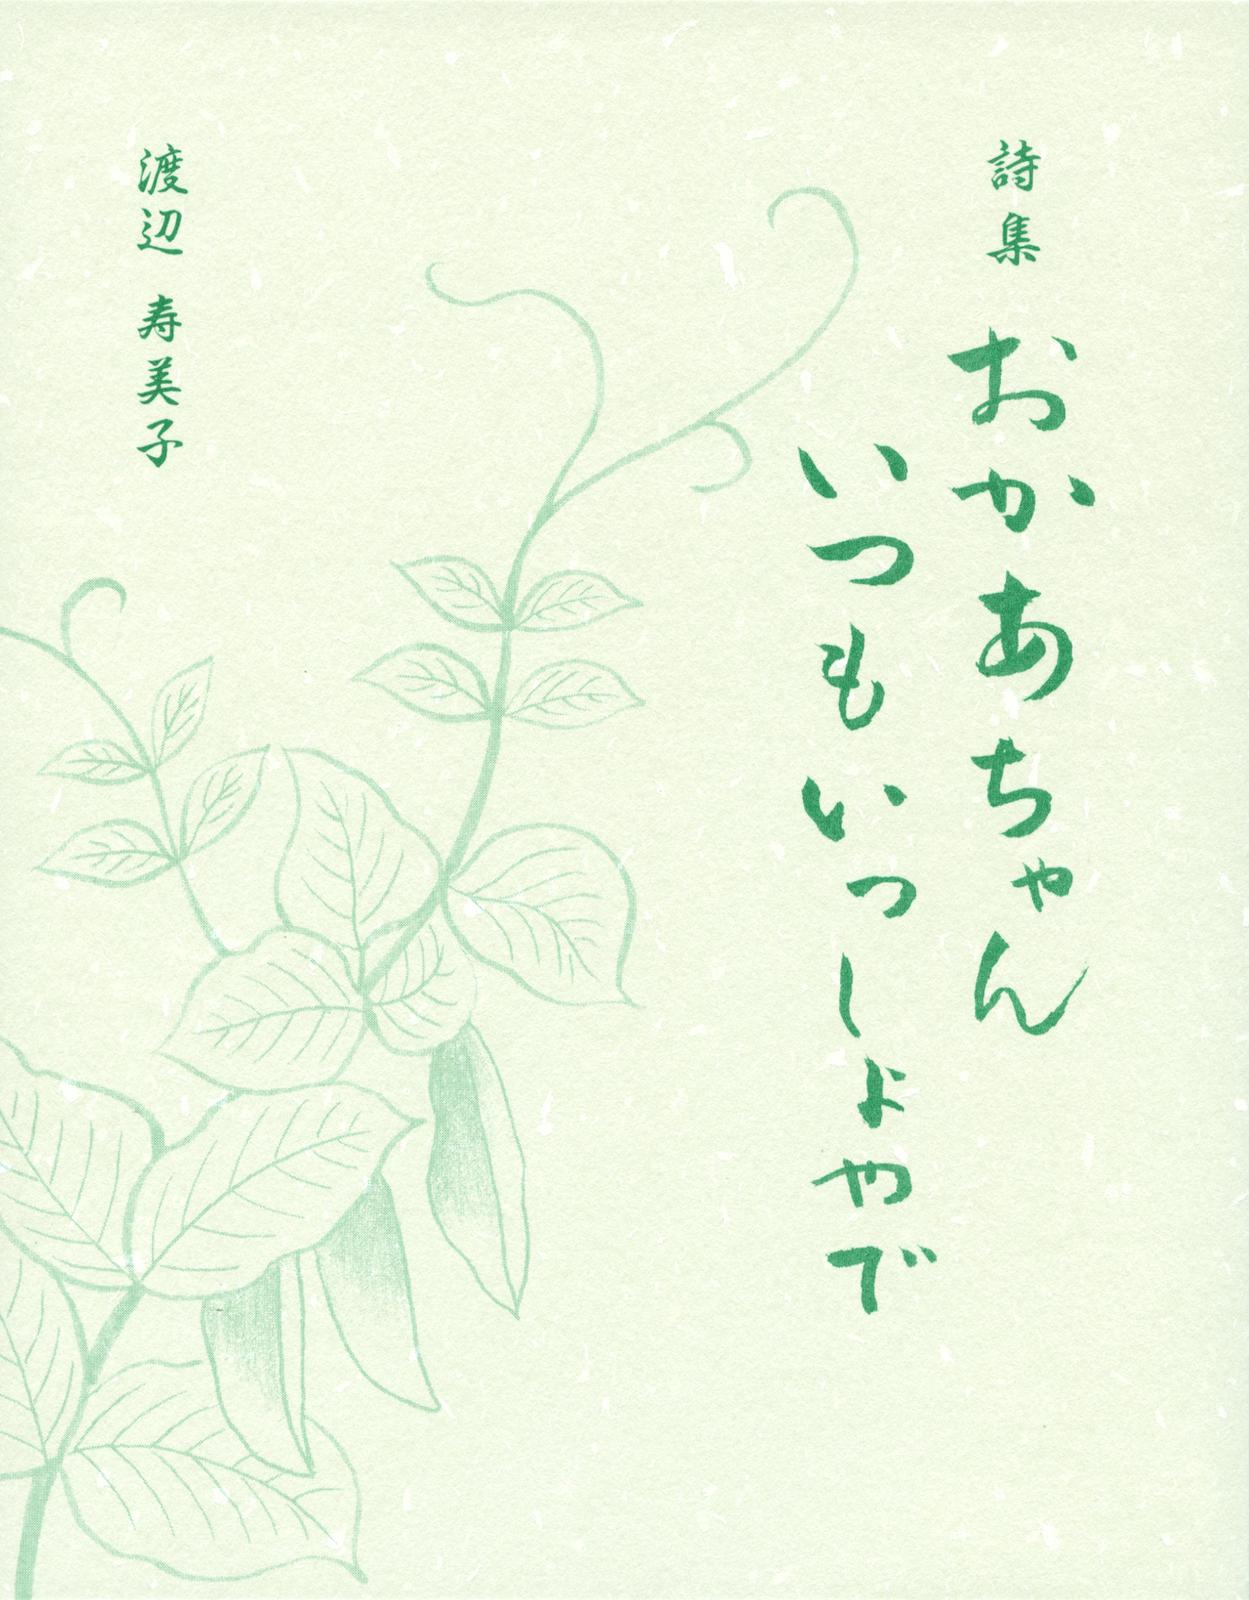 詩集
おかあちゃん
いつもいっしょやで
渡辺 寿美子